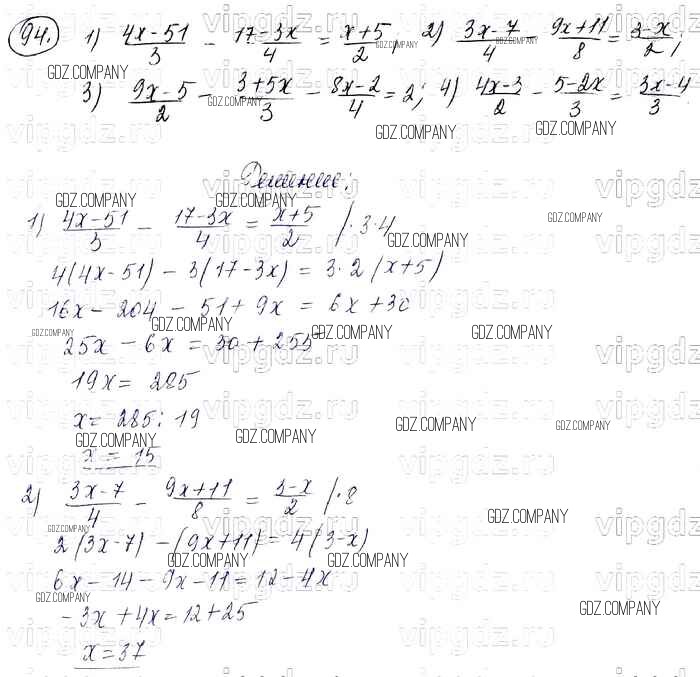 94. 1) (4x-51)/3 - (17-3x)/4 = (x+5)/2, 2) (3x-7)/4 - (9x+11)/8 = (3-x)/2;
3) (9x-5)/2 - (3+5x)/3 - (8x-2)/4 = 2; 4) (4x-3)/2 - (5-2x)/3 = (3x-4)/3
Решение:
1) (4x-51)/3 - (17-3x)/4 = (x+5)/2 /·3·4
4(4x-51) - 3(17-3x) = 3·2(x+5)
16x - 204 - 51 + 9x = 6x + 30
25x - 6x = 30 + 255
19x = 285
x = 285 : 19
x = 15
2) (3x-7)/4 - (9x+11)/8 = (3-x)/2 /·8
2(3x-7) - (9x+11) = 4(3-x)
6x - 14 - 9x - 11 = 12 - 4x
-3x + 4x = 12 + 25
x = 37
GDZ.COMPANY
vipgdz.ru